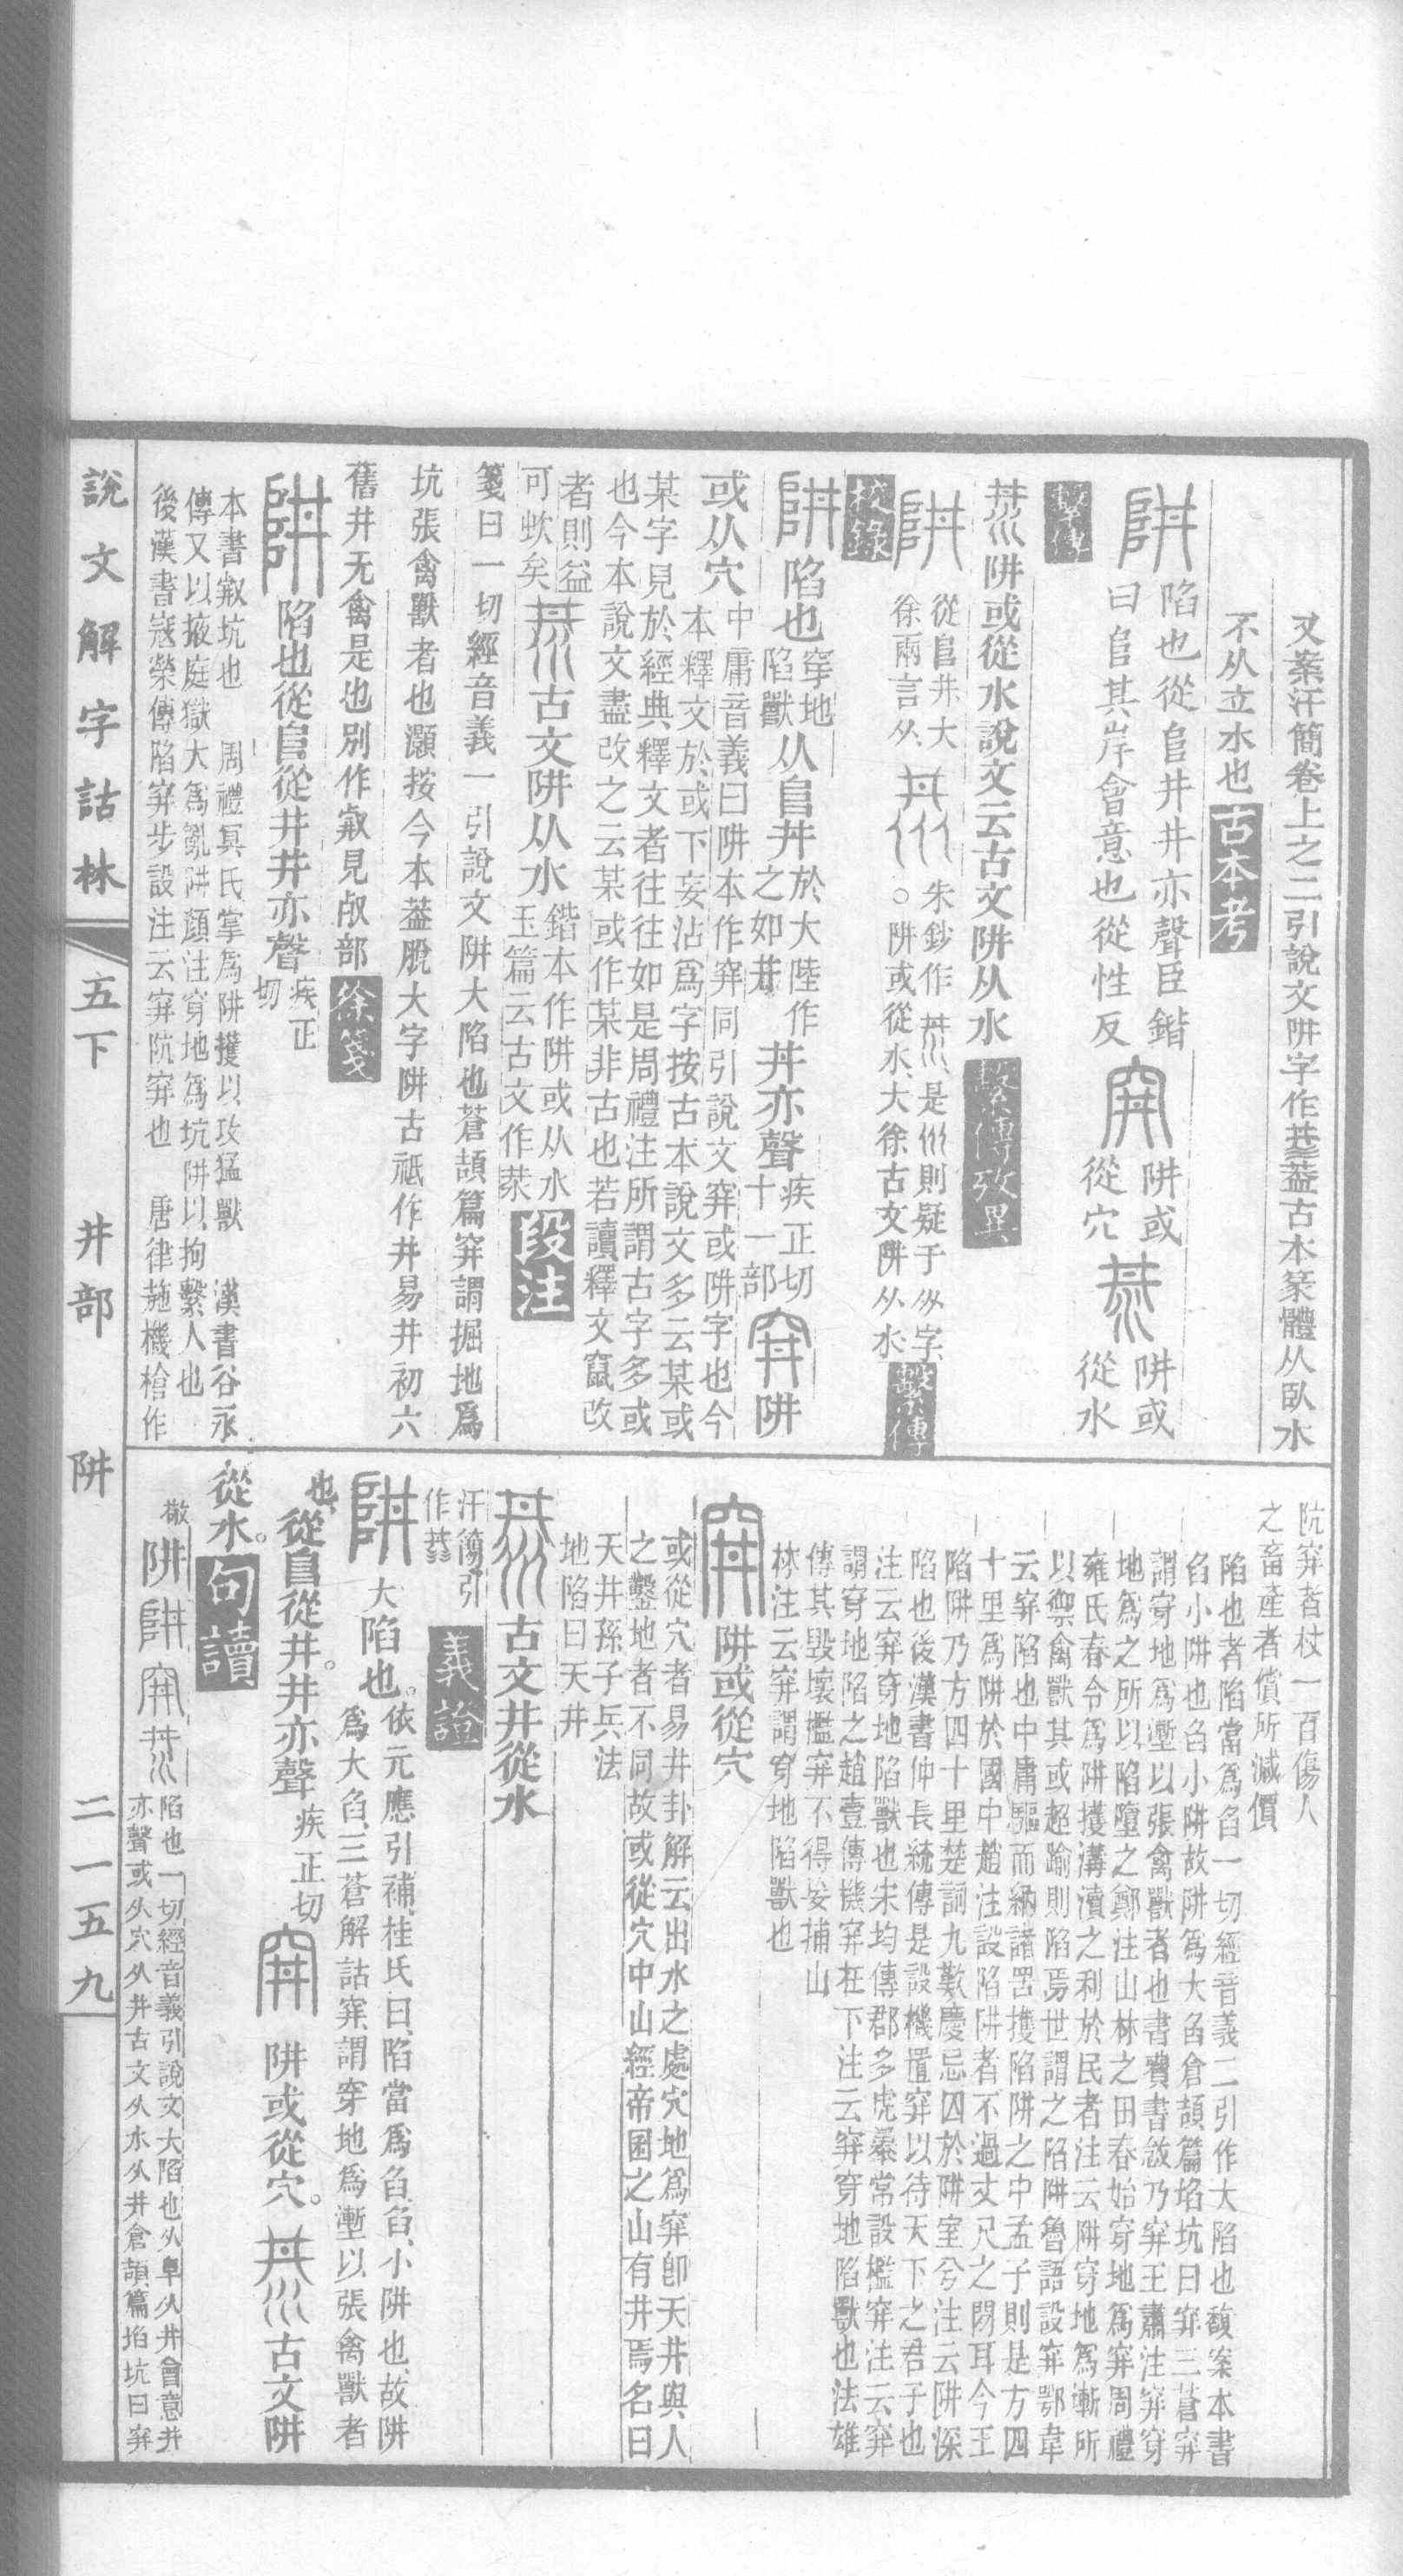 又案汗簡卷上之二引說文阱字作𦮔蓋古本篆體从臥水
不从立水也古本考
阱 陷也從𨸏井井亦聲臣鍇
曰𨸏其岸會意也從性反
穽 阱或
從穴
汬 阱或
從水
繫傳
汬阱或從水說文云古文阱从水 繫傳攷異
阱 從𨸏井大
徐兩言从
朱鈔作汬是𣲙則疑于从字
。阱或從水大徐古文阱从水 繫傳
校錄
阱陷也穿地
陷獸从𨸏井於大陸作
之如井井亦聲疾正切
十一部穽阱
或从穴中庸音義曰阱本作穽同引說文穽或阱字也今
本釋文於或下妄沾爲字按古本說文多云某或
某字見於經典釋文者往往如是周禮注所謂古字多或
也今本說文盡改之云某或作某非古也若讀釋文竄改
者則益
可蚍矣汬古文阱从水鍇本作阱或从水
玉篇云古文作汬段注
箋曰一切經音義一引說文阱大陷也蒼頡篇穽謂掘地爲
坑張禽獸者也灝按今本葢脫大字阱古祗作井易井初六
舊井无禽是也別作𡒄見𣦼部 徐箋
阱陷也從𨸏從井井亦聲疾正
切
本書𡒄坑也 周禮冥氏掌爲阱擭以攻猛獸 漢書谷永
傳又以掖庭獄大爲亂阱顏注穿地爲坑阱以拘繫人也
後漢書寇榮傳陷穽步設注云穽阬穽也 唐律施機槍作
阬穽者杖一百傷人
之畜產者償所減價
陷也者陷當爲臽一切經音義二引作大陷也馥案本書
臽小阱也臽小阱故阱爲大臽倉頡篇掐坑曰穽三蒼穽
謂穿地爲壍以張禽獸者也書費書敜乃穽王肅注穽穿
地爲之所以陷墮之鄭注山林之田春始穿地爲穽周禮
雍氏春令爲阱擭溝瀆之利於民者注云阱穿地爲壍所
以禦禽獸其或超踰則陷焉世謂之陷阱魯語設穽鄂韋
云穽陷也中庸驅而納諸罟擭陷阱之中孟子則是方四
十里爲阱於國中趙注設陷阱者不過丈尺之閒耳今王
陷阱乃方四十里楚詞九歎慶忌囚於阱室兮注云阱深
陷也後漢書仲長統傳是設機置穽以待天下之君子也
注云穽穿地陷獸也宋均傳郡多虎㬥常設檻穽注云穽
謂穿地陷之趙壹傳機穽在下注云穽穿地陷獸也法雄
傳其毀壞檻穽不得妄捕山
林注云穽謂穿地陷獸也
穽 阱或從穴
或從穴者易井卦解云出水之處穴地爲穽卽天井與人
之鑿地者不同故或從穴中山經帝囷之山有井焉名曰
天井孫子兵法
地陷曰天井
汬 古文井從水
汗簡引
作𦮔 義證
阱 大陷也。依元應引補桂氏曰陷當爲臽臽小阱也故阱
爲大臽三蒼解詁穽謂穿地爲壍以張禽獸者
也從𨸏從井。井亦聲疾正切 穽 阱或從穴。汬古文阱
從水。句讀
檄 阱 阱 穽 汬 陷也一切經音義引說文大陷也从𨸏从井會意井
亦聲或从穴从井古文从水从井倉頡篇掐坑曰穽
說文解字詁林 五下 井部 阱 二一五九